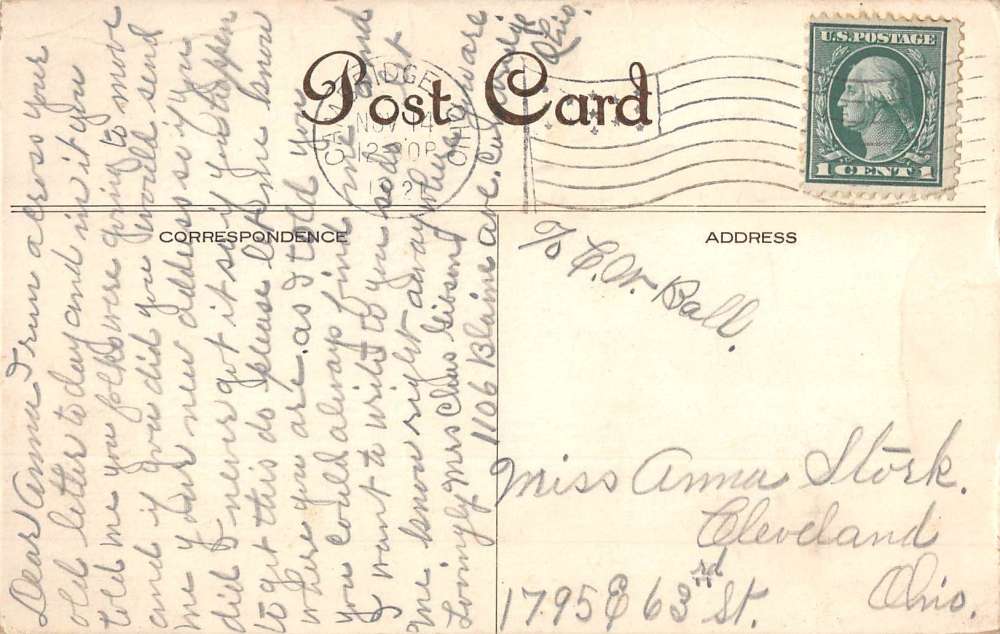 Post Card
U.S. POSTAGE
1 CENT 1
CAMBRIDGE
OHIO
NOV 14
CORRESPONDENCE
ADDRESS
Dear Anna I run across your
old letter to day and in it you
told me you folks were going to move
and if you did you would send
me your new address so if you
did I never got it so if you happen
to get this do please let me know
where you are. as I told you
you could always find me and
I want to write to you soon so let
me know right away
Lovingly Mrs Chas Gibson
1106 Blaine ave. Cambridge
Ohio.
c/o C.W. Ball.
Miss Anna Stork.
Cleveland
1795 E 63rd St. Ohio.